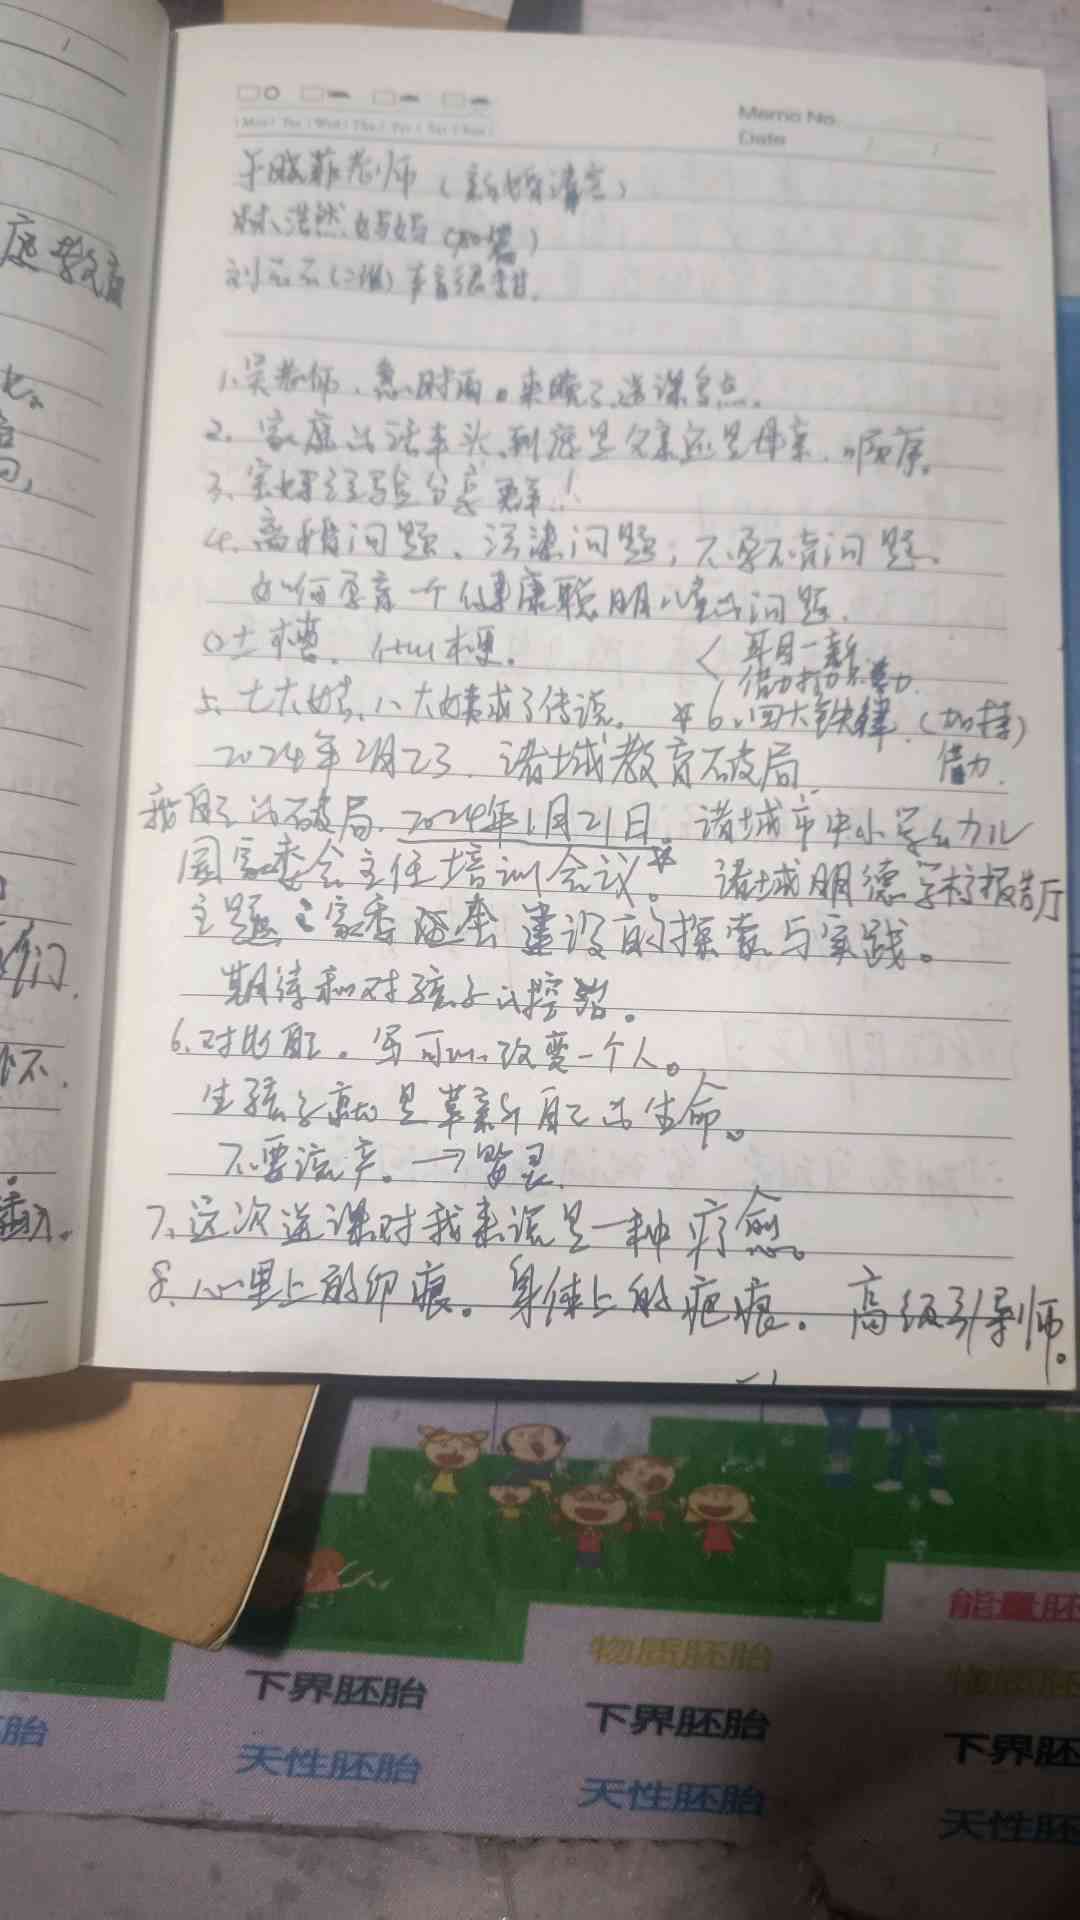 庭教育
Memo No.
Date
Mon Tue Wed Thu Fri Sat Sun
老师（新婚
林浩然妈妈（
刘云云（二胎）声音很甜。
1、吴老师、及时雨。来晚了，送课多点。
2、家庭生活车头，到底是父亲还是母亲、顺序。
3、家好经验分享 群！
4、离婚问题、污染问题，不孕不育问题、
如何孕育一个健康聪明儿童的问题．
吐槽． 什么梗．
〈 耳目一新
借力打力不费力．
5、七大姑、八大姨成了传说． ※6、四大铁律．（加持）
2024年2月23． 诸城教育破局 借力．
我自己的破局．2024年1月21日．诸城市中小学幼儿
园家委会主任培训会议※。 诸城明德学校报告厅
主题：家委 建设的探索与实践。
期待和对孩子的控制。
6、对比自己。写可以改变一个人。
生孩子就是革新自己的生命。
不要流产。→婴灵．
7、这次送课对我来说是一种疗愈。
8、心里上的印痕。身体上的疤痕． 高级引导师。
们．
不．
能量胚
物质胚胎
物质胚
下界胚胎
下界胚胎
下界胚
胚胎
天性胚胎
天性胚胎
天性胚